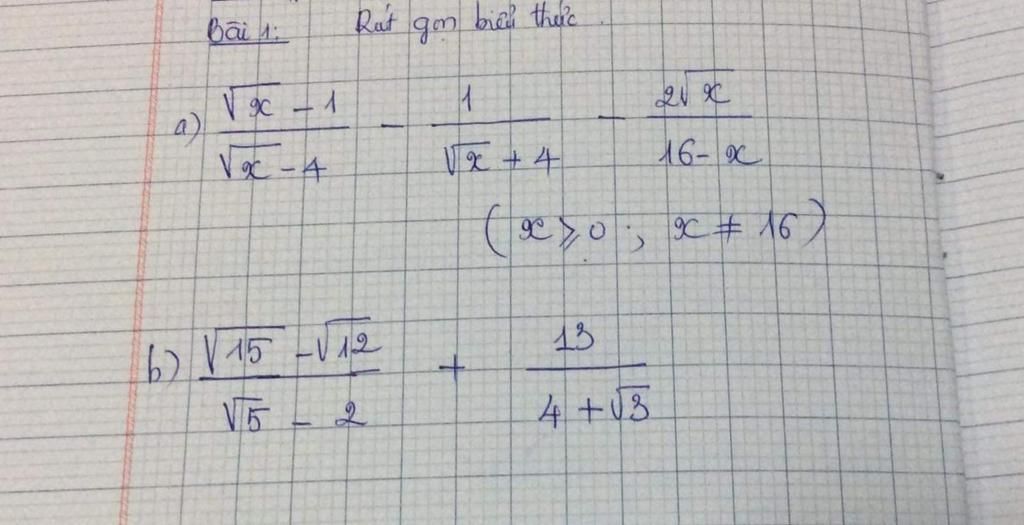 Bài 1: Rút gọn biểu thức.
a) (√x - 1)/(√x - 4) - 1/(√x + 4) - 2√x/(16 - x)
(x ⩾ 0 ; x ≠ 16)
b) (√15 - √12)/(√5 - 2) + 13/(4 + √3)